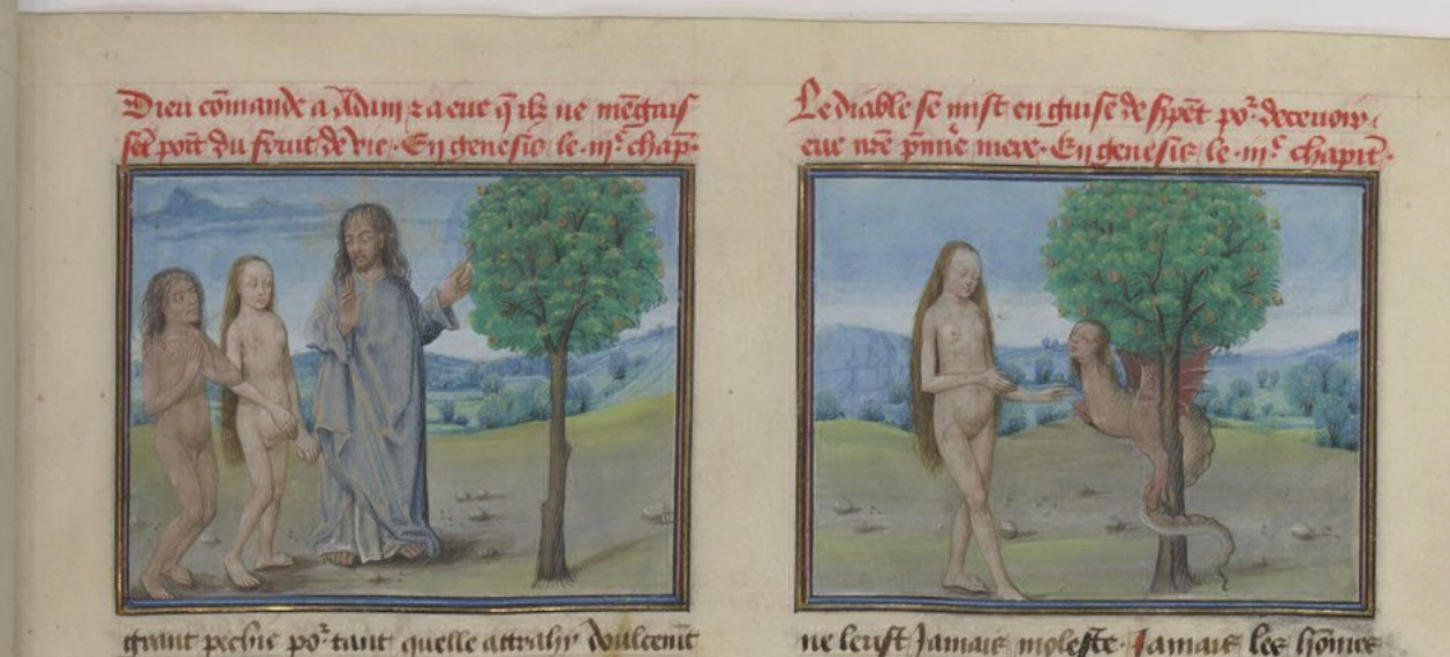 Dieu cōmande a Adam ⁊ a eue q̄ ilz ne mēgus
sēt poīt du fruit de vie. En genesis le .iijᵉ. chap̄.
grant pechie poʳ tant quelle attrahy doulcemēt
Le diable se mist en guise de ſṕēt poʳ deceuoir
eue nr̄e p̄miē mere. En genesis le .iijᵉ. chapit̄.
ne leust Jamais moleste. Jamais les hōmes